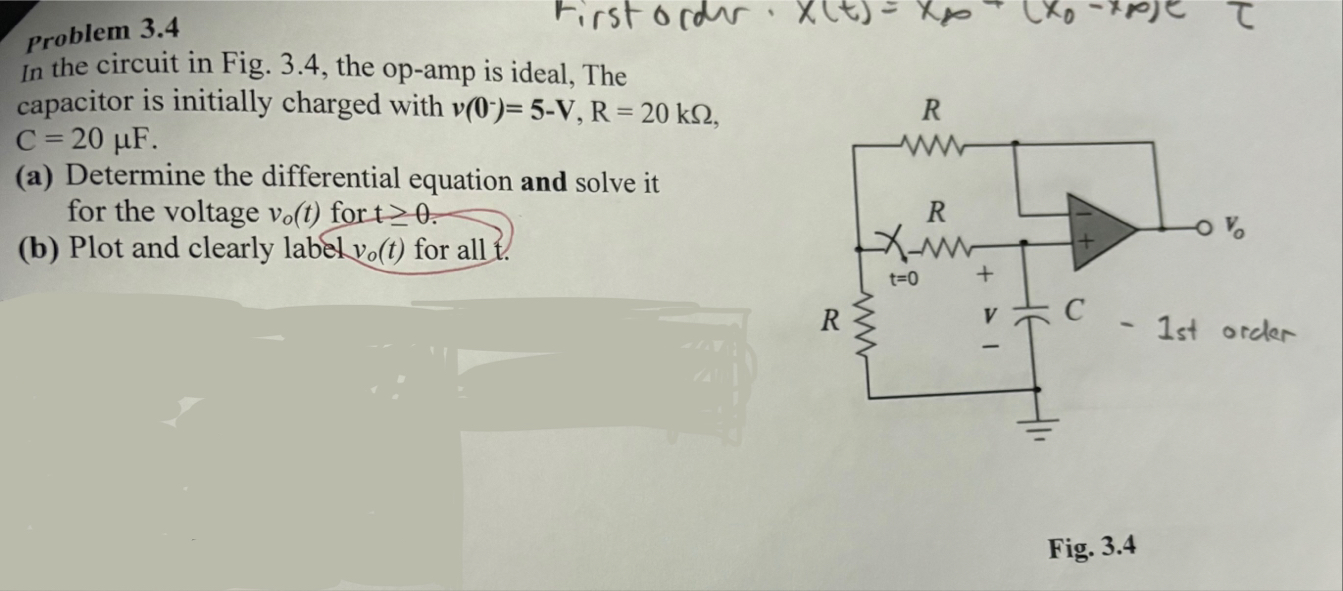 First order . X(t) = X∞ + (X0 - X∞)e τ
Problem 3.4
In the circuit in Fig. 3.4, the op-amp is ideal, The
capacitor is initially charged with v(0⁻)= 5-V, R = 20 kΩ,
C = 20 μF.
(a) Determine the differential equation and solve it
for the voltage vₒ(t) for t ≥ 0.
(b) Plot and clearly label vₒ(t) for all t.
R
R
t=0
+
V
−
C
R
−
+
Vₒ
- 1st order
Fig. 3.4